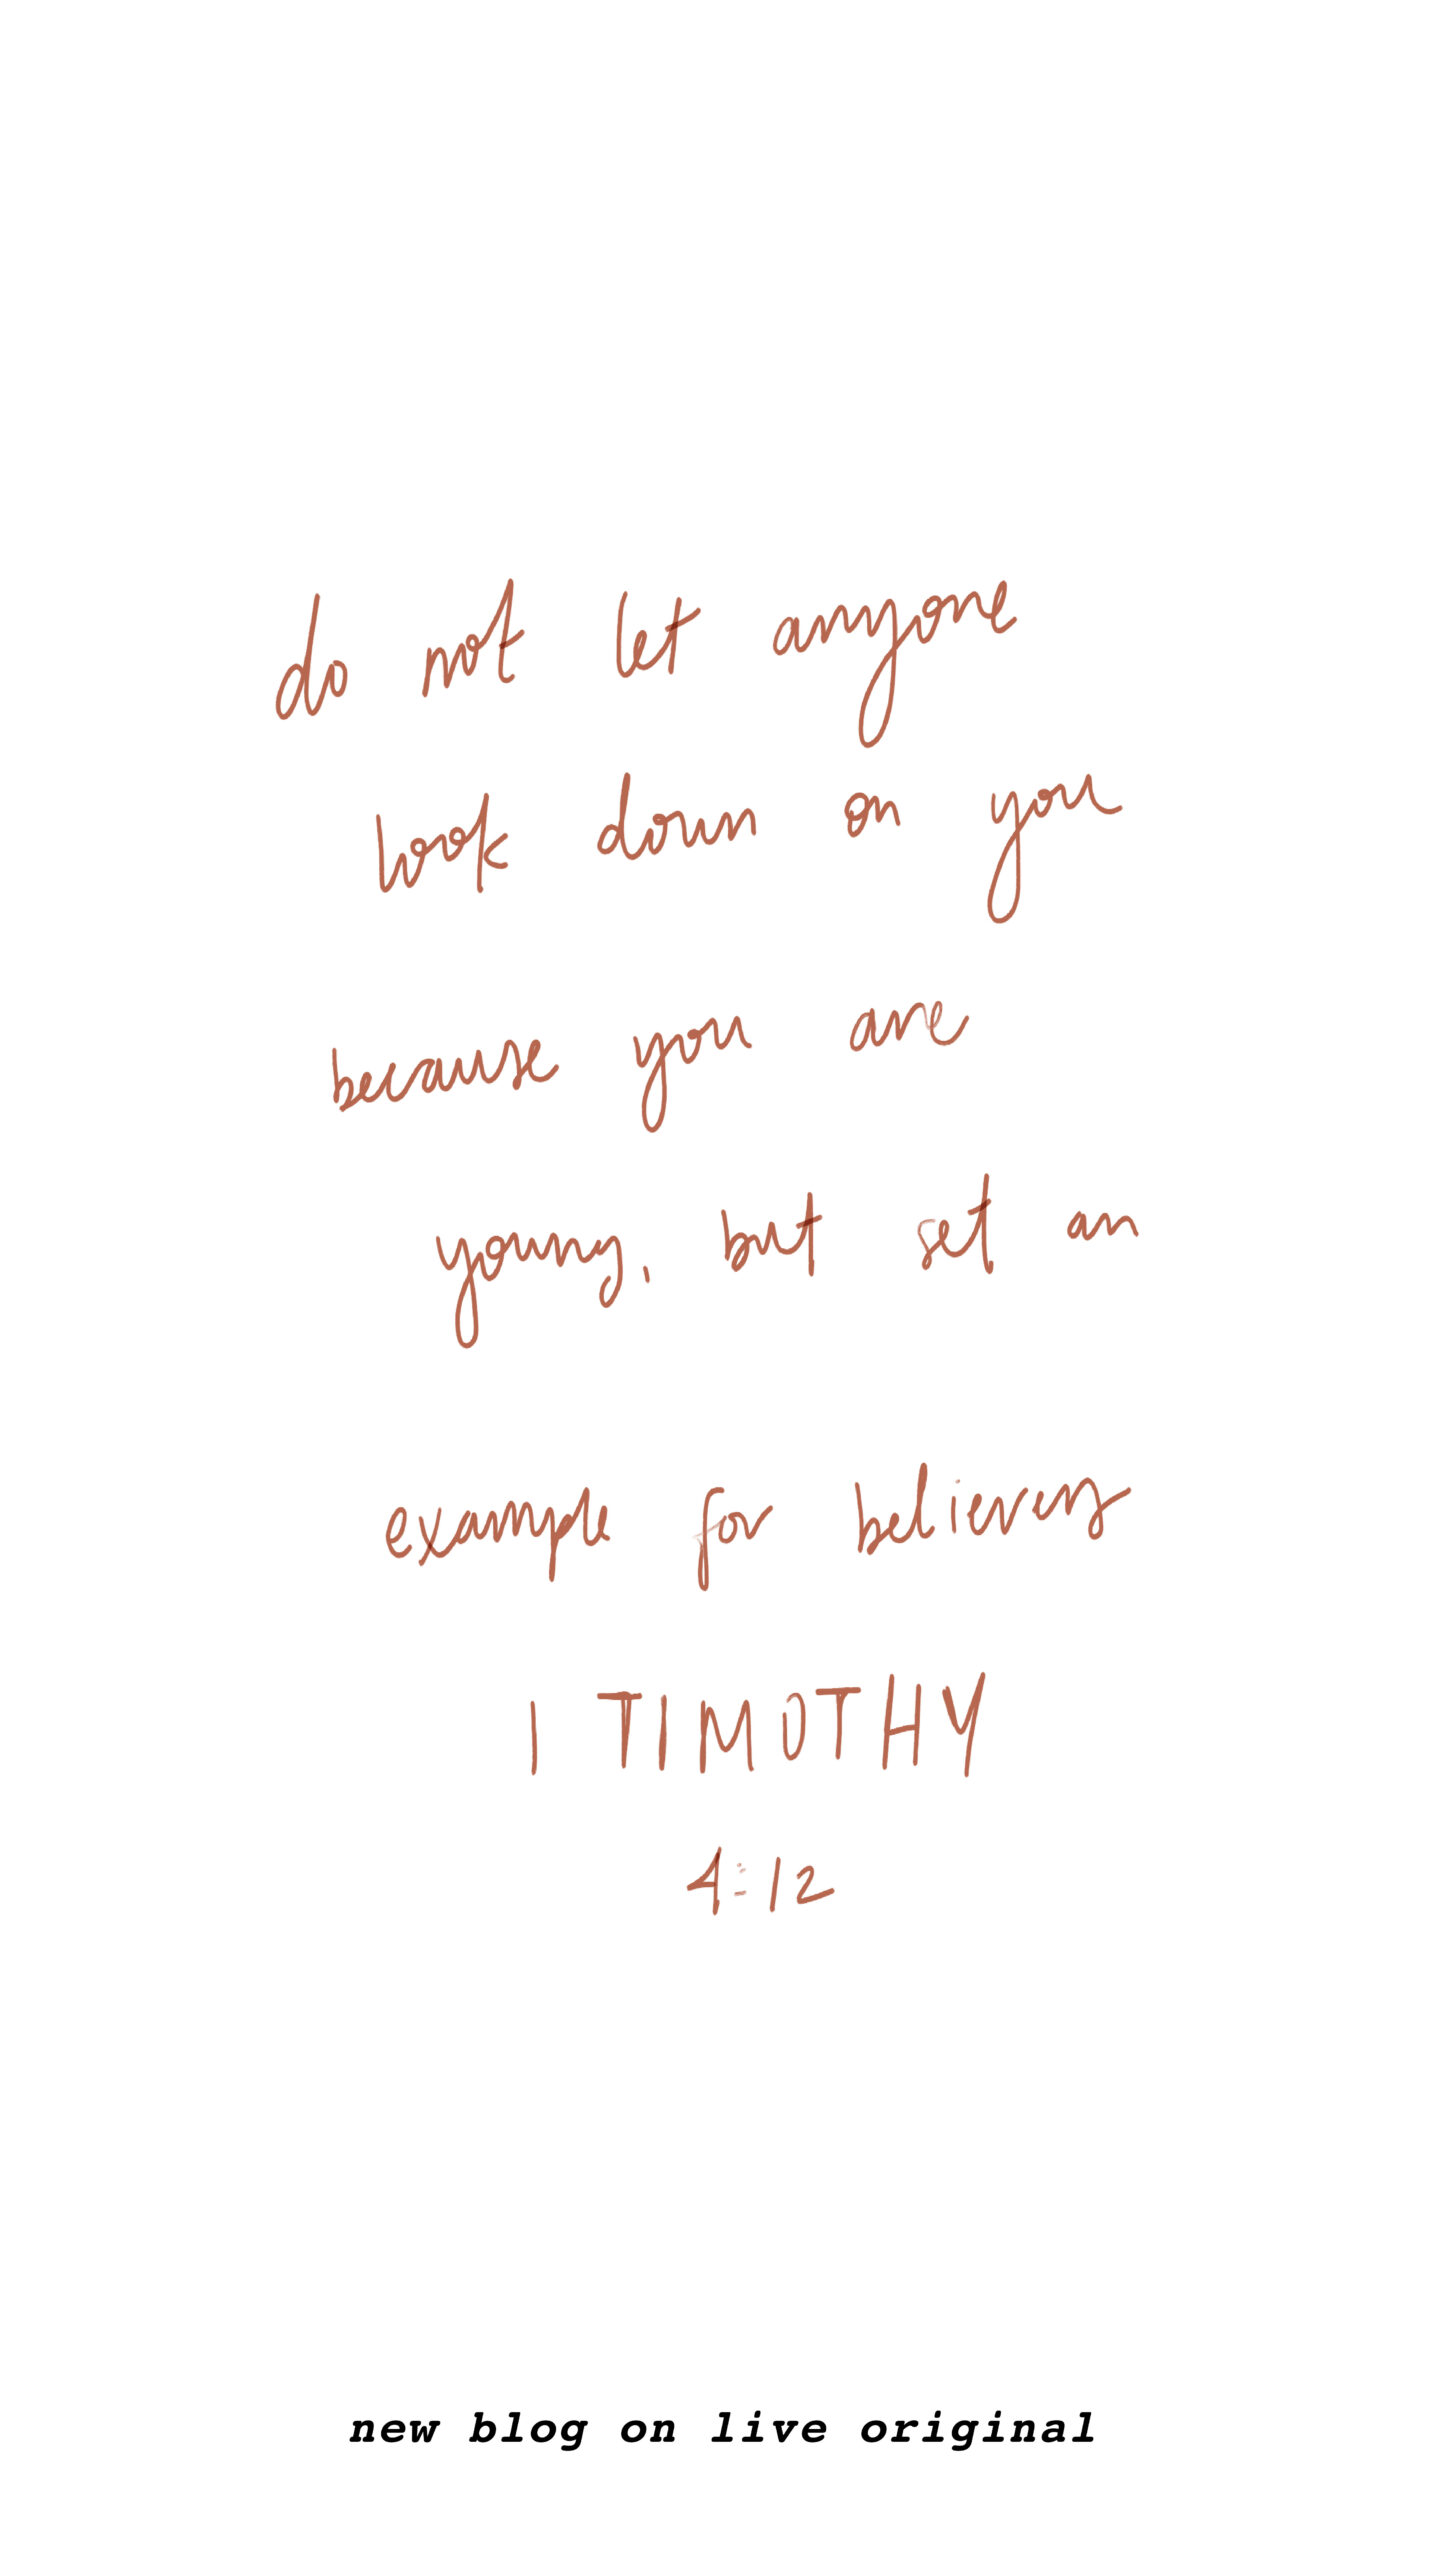 do not let anyone
look down on you
because you are
young, but set an
example for believers
1 TIMOTHY
4:12
new blog on live original